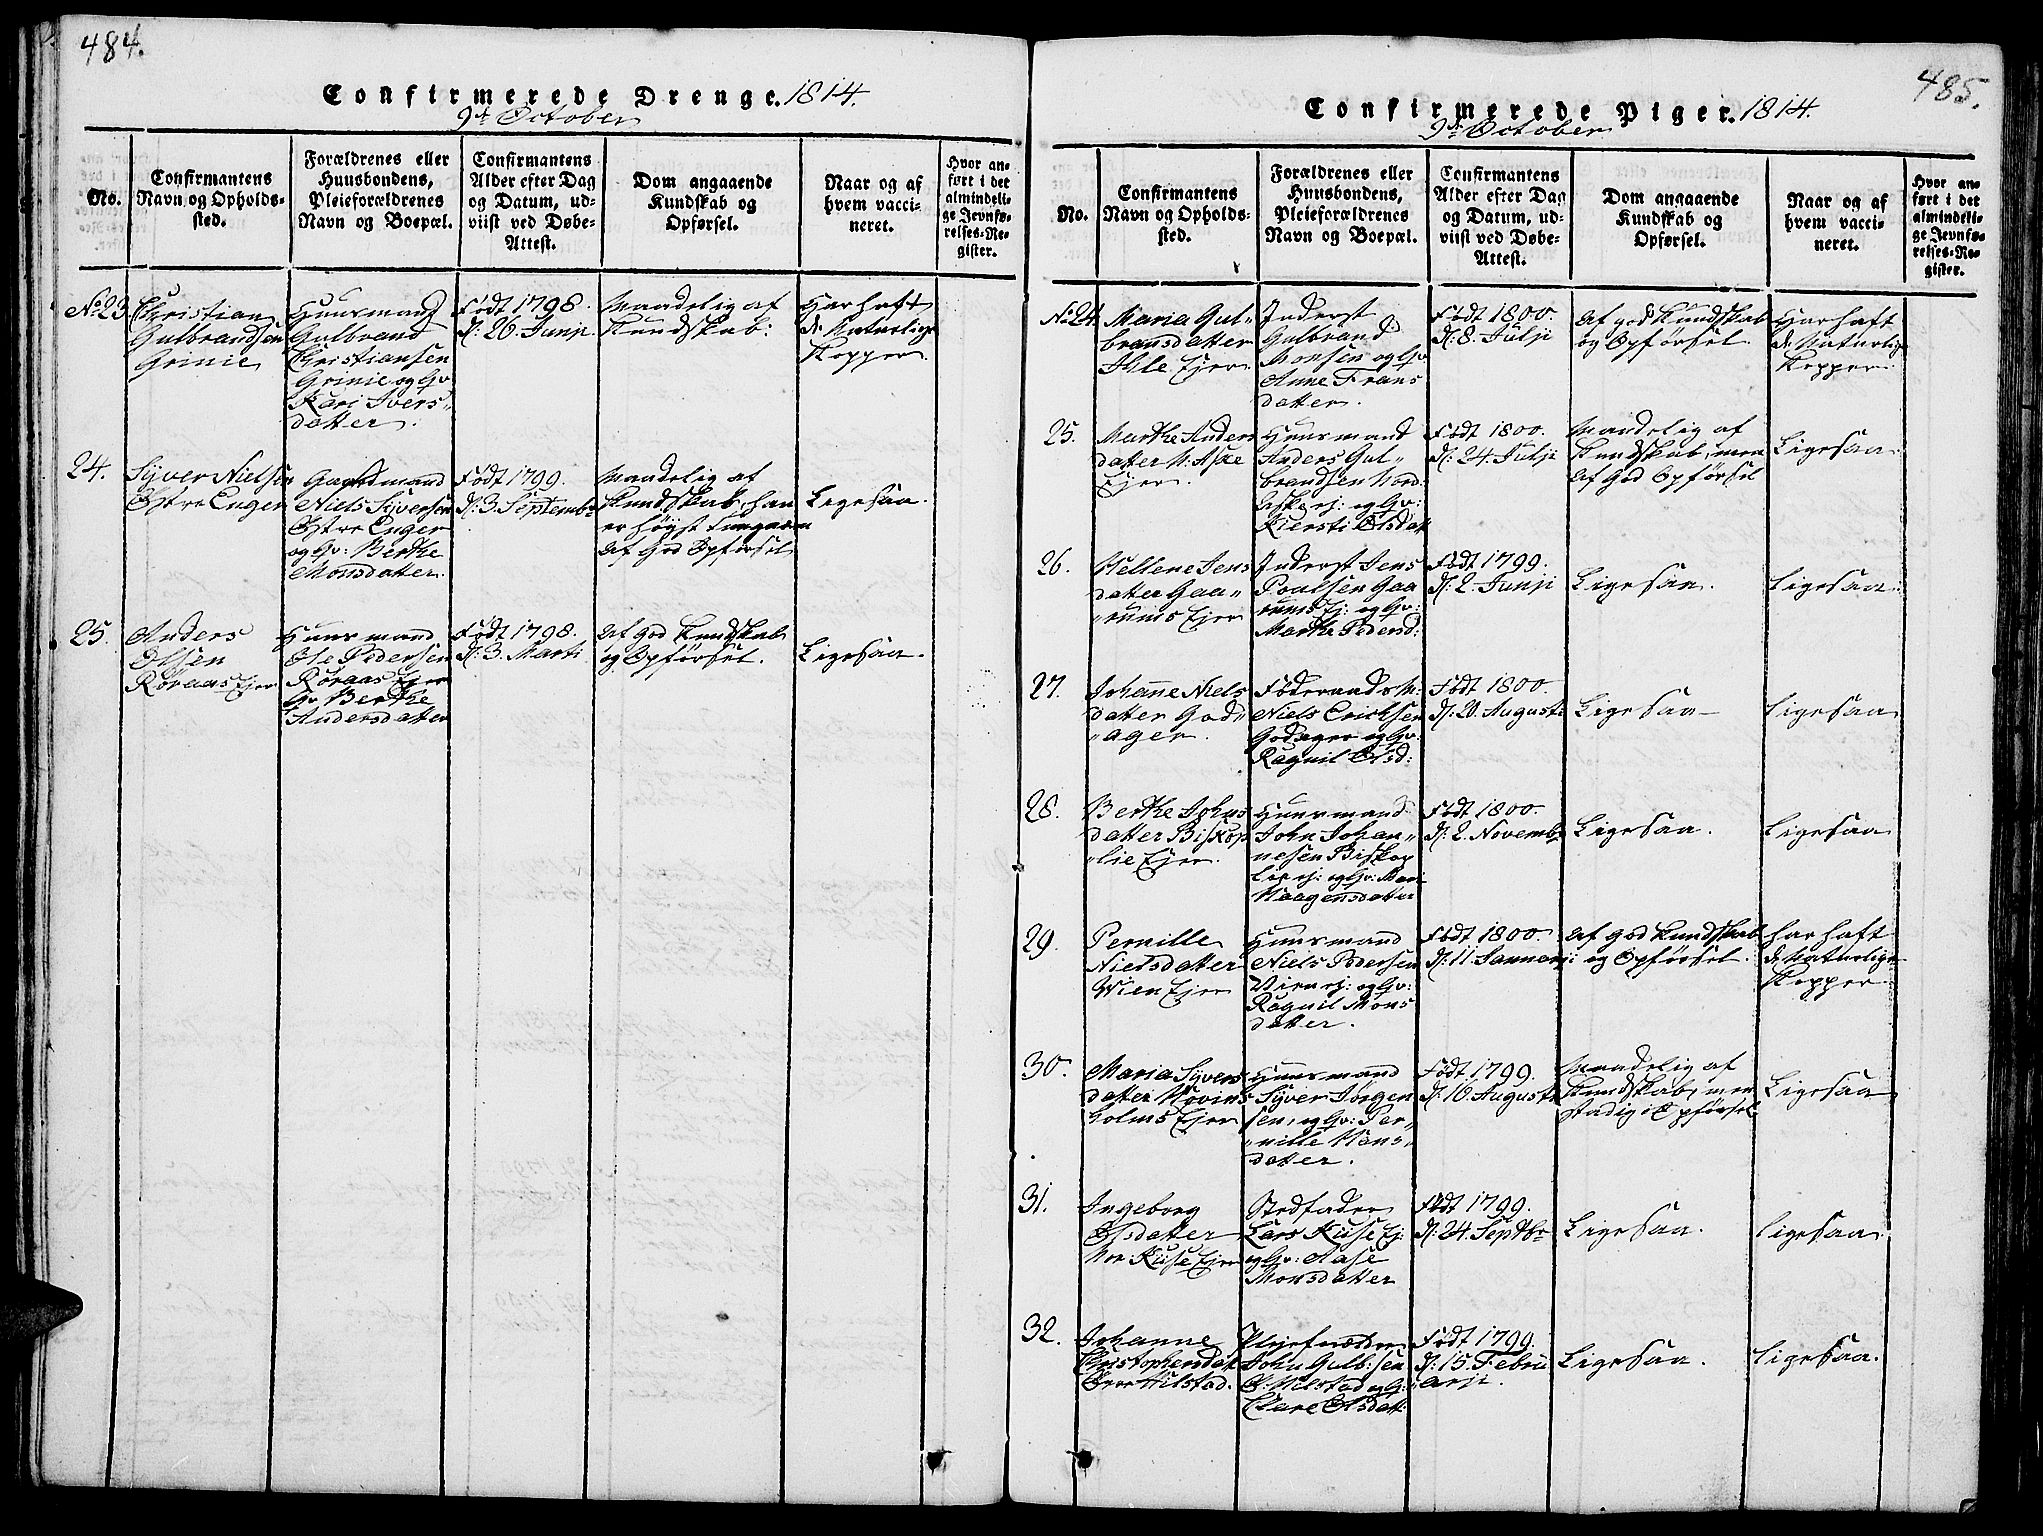 484.
Confirmerede Drenge. 1814.
9de October
No.
Confirmantens Navn og Opholds-sted.
Forældrenes eller Huusbondens, Pleieforældrenes Navn og Boepæl.
Confirmantens Alder efter Dag og Datum, ud-viist ved Døbe-Attest.
Dom angaaende Kundskab og Opførsel.
Naar og af hvem vacci-neret.
Hvor an-ført i det almindeli-ge Jevnfø-relses-Re-gister.
No 23.
Christian
Gulbrandsen
Grinie
Huusmand
Gulbrand
Christiansen
Grinie og Gv
Kari Ivers„
datter.
Født 1798.
d: 26. Junji
Maadelig af
Kundskab:
Har haft
d: Naturlige
Kopper.
24.
Syver Nielsen
Østre Enger
Gaardmand
Niels Syversen
Østre Enger
og Gv: Berthe
Monsdatter.
Født 1799.
d: 3. Septembr
Maadelig af
Kundskab, han
er høyst
af God Opførsel
Ligesaa.
25.
Anders
Olsen
Røraas Ejer
Huusmand
Ole Pedersen
Røraas Ejer
Gv Berthe
Andersdatter
Født 1798.
d: 3. Marti
af God Kundskab
og Opførsel.
Ligesaa.
485.
Confirmerede Piger. 1814.
9de October
No.
Confirmantens Navn og Opholds-sted.
Forældrenes eller Huusbondens, Pleieforældrenes Navn og Boepæl.
Confirmantens Alder efter Dag og Datum, ud-viist ved Døbe-Attest.
Dom angaaende Kundskab og Opførsel.
Naar og af hvem vacci-neret.
Hvor an-ført i det almindeli-ge Jevnfø-relses-Re-gister.
No 24.
Maria Gul„
bransdatter
Ihle Ejer
Inderst
Gulbrand
Monsen og Gv
Anne Frans
datter.
Født 1800.
d: 8. Julji
af god Kundskab
og Opførsel.
Har haft
d: Naturlig
Kopper.
25.
Marthe Anders
datter N: Aske
Ejer.
Huusmand
Anders Gul„
brandsen Nord
Aske ej: og Gv:
Kiersti Olsdat
Født 1800.
d: 24. Julji
Maadelig af
Kundskab, men
af God Opførsel
Ligesaa.
26.
Hellene Jens
datter Gaa„
„rums Ejer
Inderst Jens
Poulsen Gaa
rums Ej: og Gv:
Marthe Pedersd:
Født 1799.
d: 2. Junji
Ligesaa.
Ligesaa.
27.
Johanne Niels
datter God„
„ager.
Føderaads M:
Niels Erichsen
Godager og Gv:
Ragnil Olsd:
Født 1800.
d: 20. August:
Ligesaa
Ligesaa
28.
Berthe Johns
datter Biskop
„lie Ejer.
Huusmand
John Johan„
nesen Biskop
lie ej: og Gv: Mari
Haagensdatter
Født 1800.
d: 2. Novembr
Ligesaa.
Ligesaa
29.
Pernille
Nielsdatter
Wien Ejer
Huusmand
Niels Pedersen
Vien ej: og Gv:
Ragnil Mons
datter.
Født 1800.
d: 11 Januarji
af god Kundskab
og Opførsel.
har haft
d: Naturlige
Kopper
30.
Maria Syvers
datter Hovins
holms Ejer
Huusmand
Syver Jørgen
sen, og Gv: Per„
„nille Hans„
datter.
Født 1799.
d: 16. August:
Maadelig af
Kundskab, men
stadig i Opførsel
Ligesaa
31.
Ingeborg
Olsdatter
Nor: Kuse Ejer
Stedfader
Lars Kuse Ej:
og Gv: Aase
Monsdatter
Født 1799.
d: 24. Septbr
Ligesaa.
Ligesaa
32.
Johanne
Christophersdat
Øvre Hilstad.
Plejefaader
John Gulb:sen
Ø: Hilstad og G:
Clare Olsdat:
Født 1799.
d: 15. Febru
„arji.
Ligesaa.
Ligesaa.